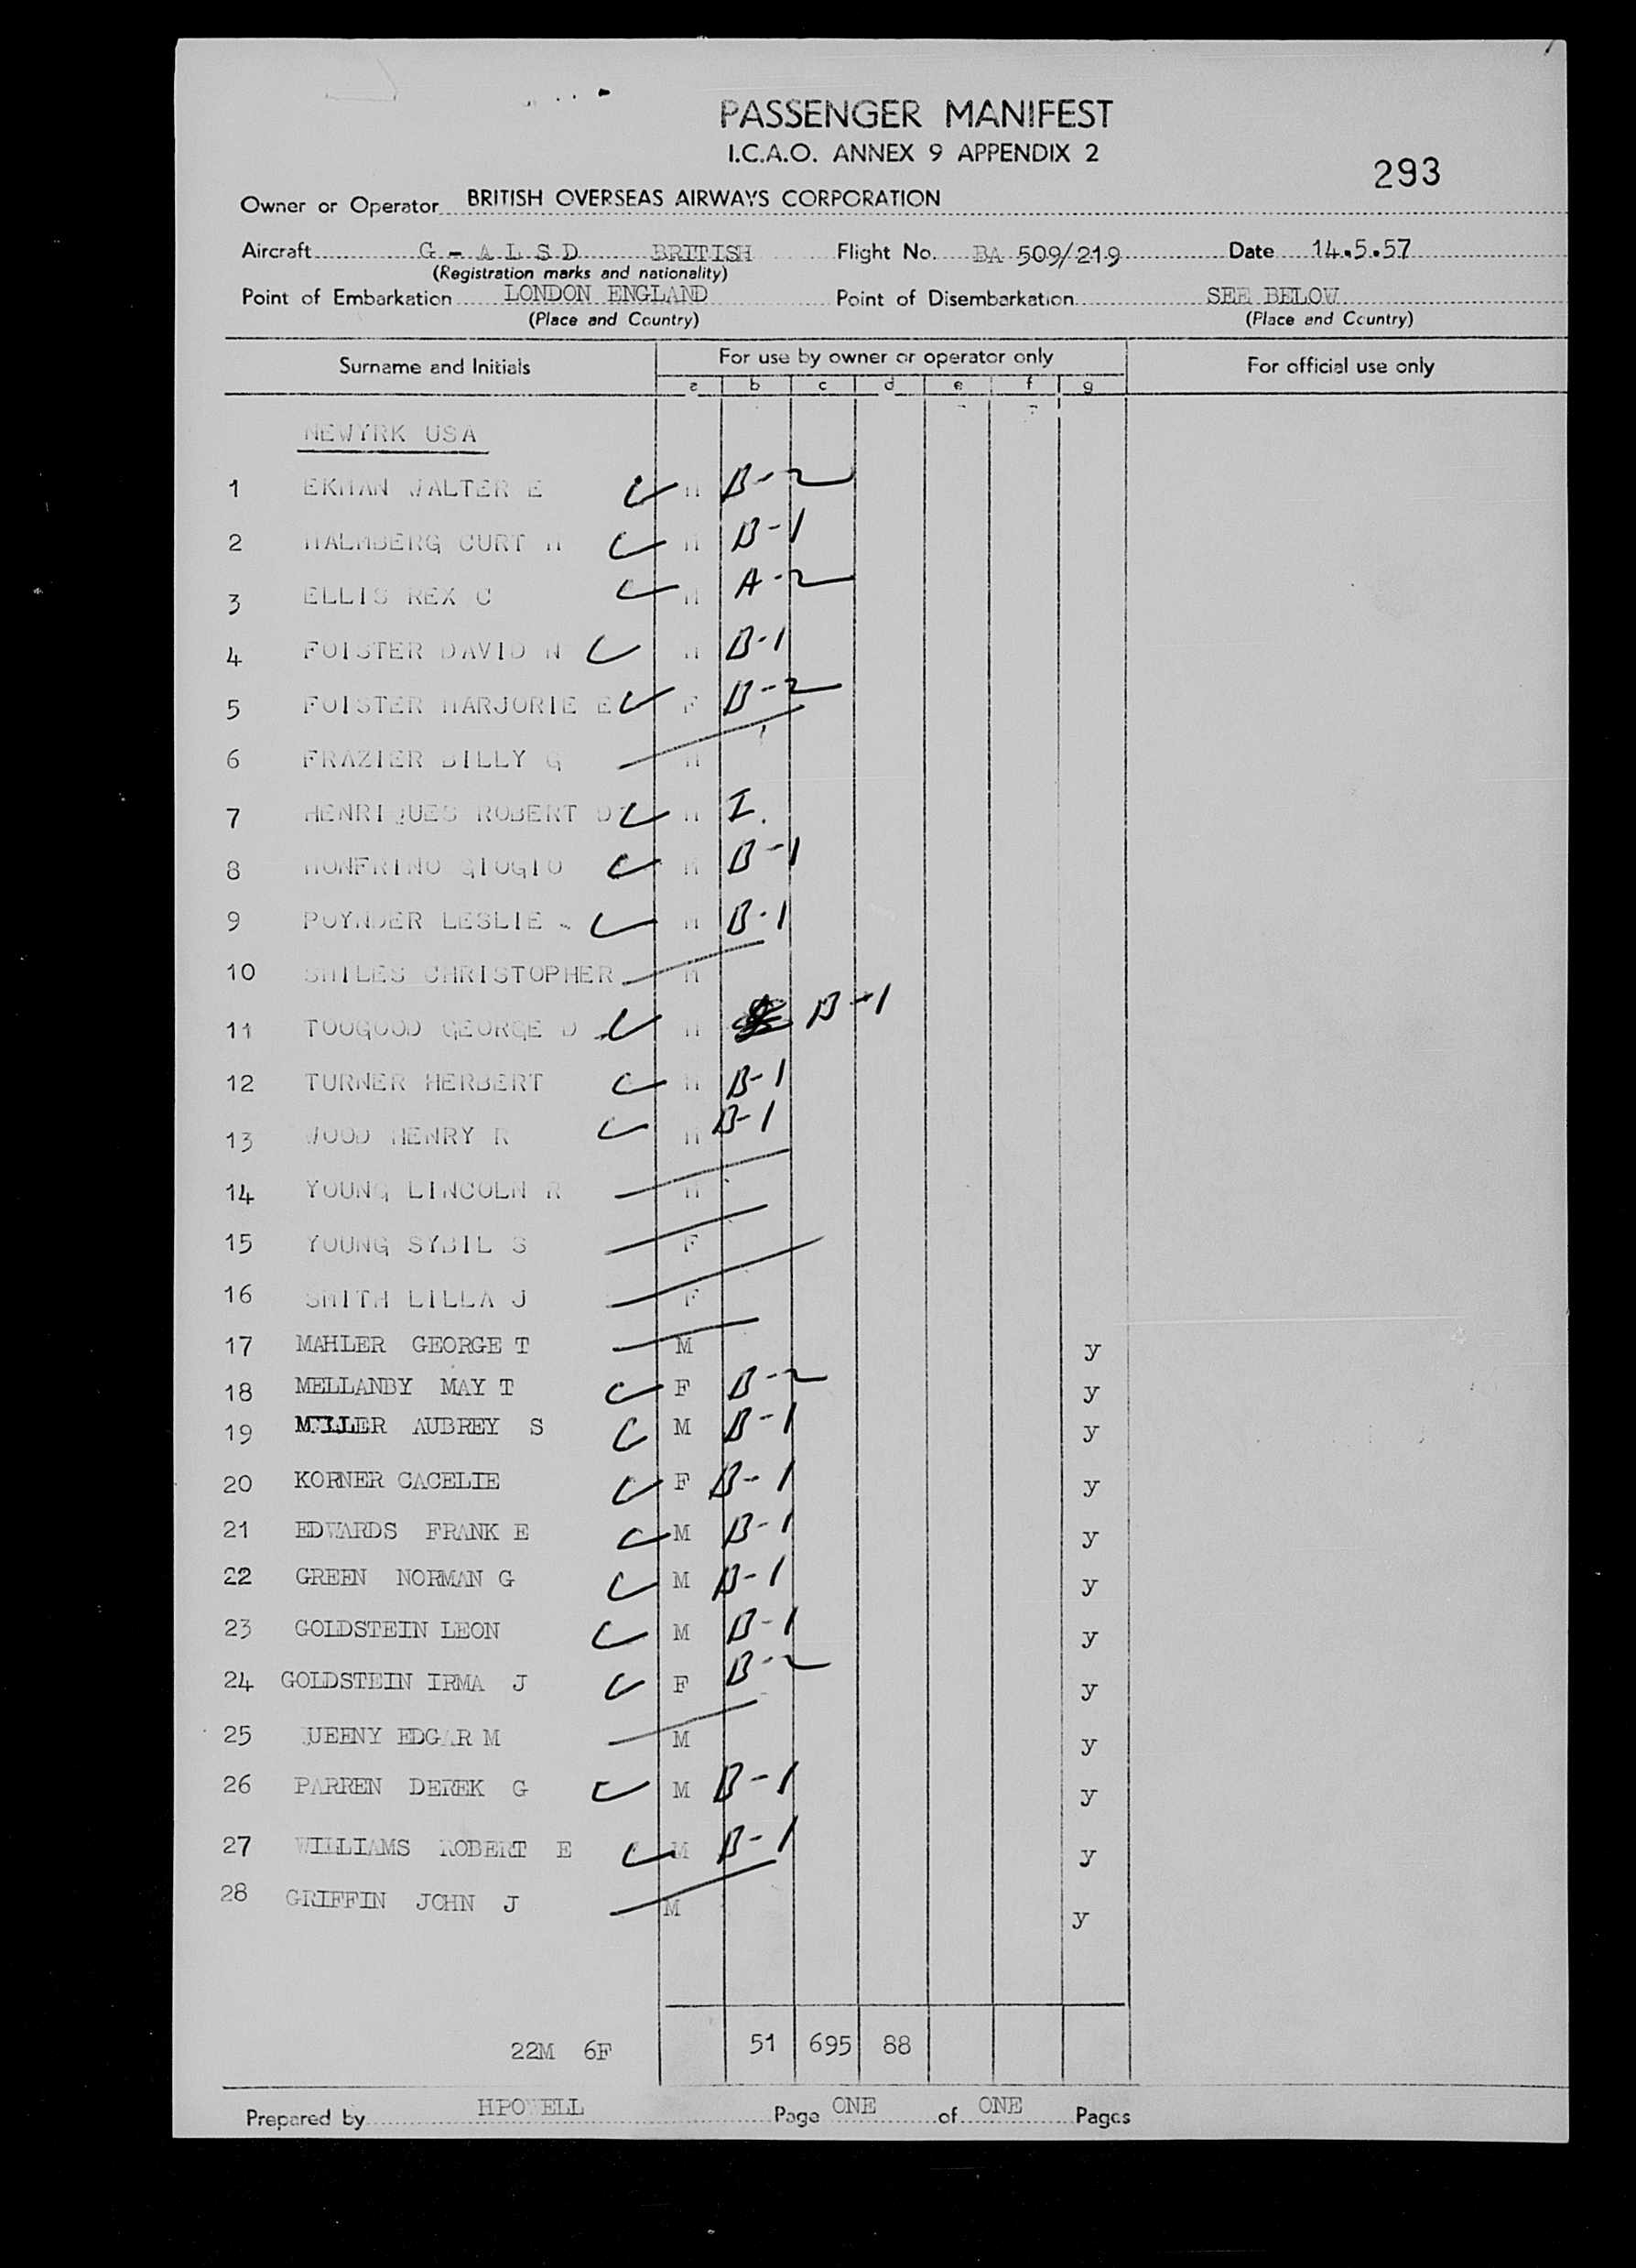 PASSENGER MANIFEST
I.C.A.O. ANNEX 9 APPENDIX 2
293
Owner or Operator BRITISH OVERSEAS AIRWAYS CORPORATION
Aircraft G - A L S D BRITISH Flight No. BA 509/219 Date 14.5.57
(Registration marks and nationality)
Point of Embarkation LONDON ENGLAND Point of Disembarkation SEE BELOW
(Place and Country) (Place and Country)
Surname and Initials For use by owner or operator only For official use only
a b c d e f g
NEWYRK USA
1 EKMAN WALTER E M B-2
2 MALMBERG CURT H M B-1
3 ELLIS REX C M A-2
4 FOISTER DAVID N M B-1
5 FOISTER MARJORIE E F B-2
6 FRAZIER BILLY G M
7 HENRIQUES ROBERT D M I.
8 MONFRINO GIOGIO M B-1
9 POYNDER LESLIE M B-1
10 SMILES CHRISTOPHER M
11 TOOGOOD GEORGE D M B-1
12 TURNER HERBERT M B-1
13 WOOD HENRY R M B-1
14 YOUNG LINCOLN R M
15 YOUNG SYBIL S F
16 SMITH LILLA J F
17 MAHLER GEORGE T M y
18 MELLANBY MAY T F B-2 y
19 MILLER AUBREY S M B-1 y
20 KORNER CACELIE F B-1 y
21 EDWARDS FRANK E M B-1 y
22 GREEN NORMAN G M B-1 y
23 GOLDSTEIN LEON M B-1 y
24 GOLDSTEIN IRMA J F B-2 y
25 QUEENY EDGAR M M y
26 PARREN DEREK G M B-1 y
27 WILLIAMS ROBERT E M B-1 y
28 GRIFFIN JOHN J M y
22M 6F 51 695 88
Prepared by HPOWELL Page ONE of ONE Pages